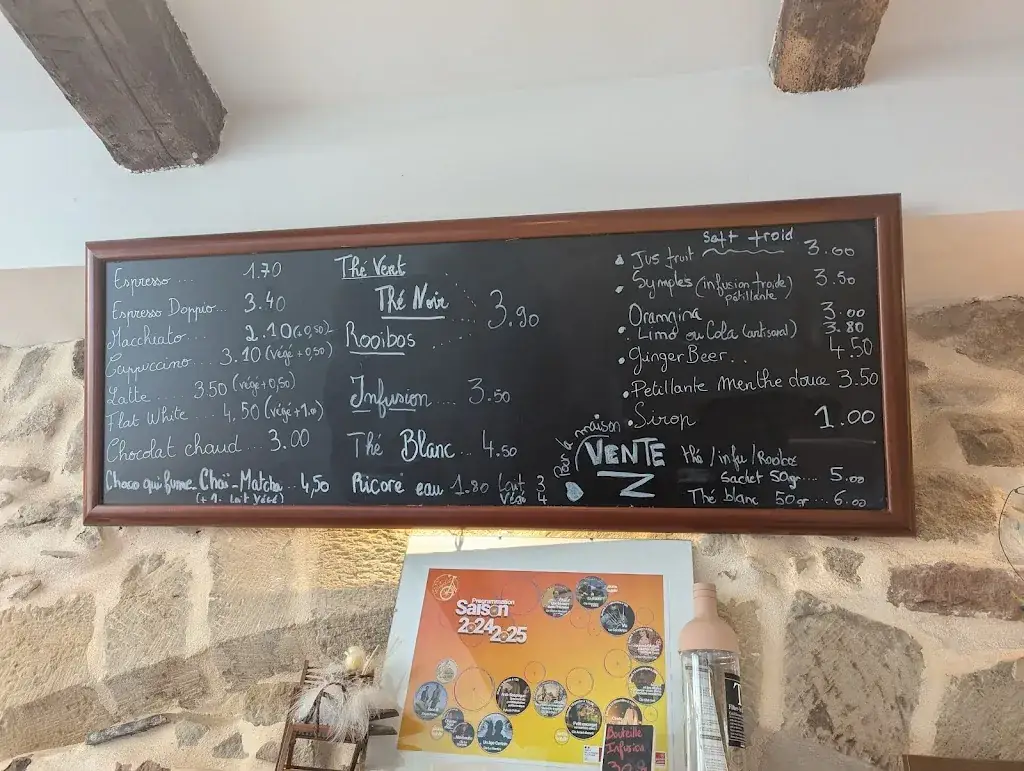 Espresso ... 1.70
Espresso Doppio... 3.40
Macchiato... 2.10 (v. 0,50)
Cappuccino... 3.10 (végé + 0,50)
Latte .... 3.50 (végé + 0,50)
Flat White .... 4,50 (végé + 1.00)
Chocolat chaud ... 3.00
Choco qui fume - Chaï - Matcha .. 4,50
(+ 1. Lait Végé)
Thé Vert
Thé Noir
Rooibos
3.90
Infusion .... 3.50
Thé Blanc .. 4.50
Ricoré eau 1.80 Lait 3
Végé 4
Soft froid
• Jus fruit 3.00
• Symples (infusion froide pétillante) 3.50
• Orangina 3.00
• Limo ou Cola (artisanal) 3.80
• Ginger Beer... 4.50
• Petillante menthe douce 3.50
• Sirop 1.00
Pour la maison
VENTE
thé / infu / Rooibos
sachet 50gr .... 5.00
Thé blanc 50gr .... 6.00
Programmation
Saison
2024 2025
Bouteille
Infusion